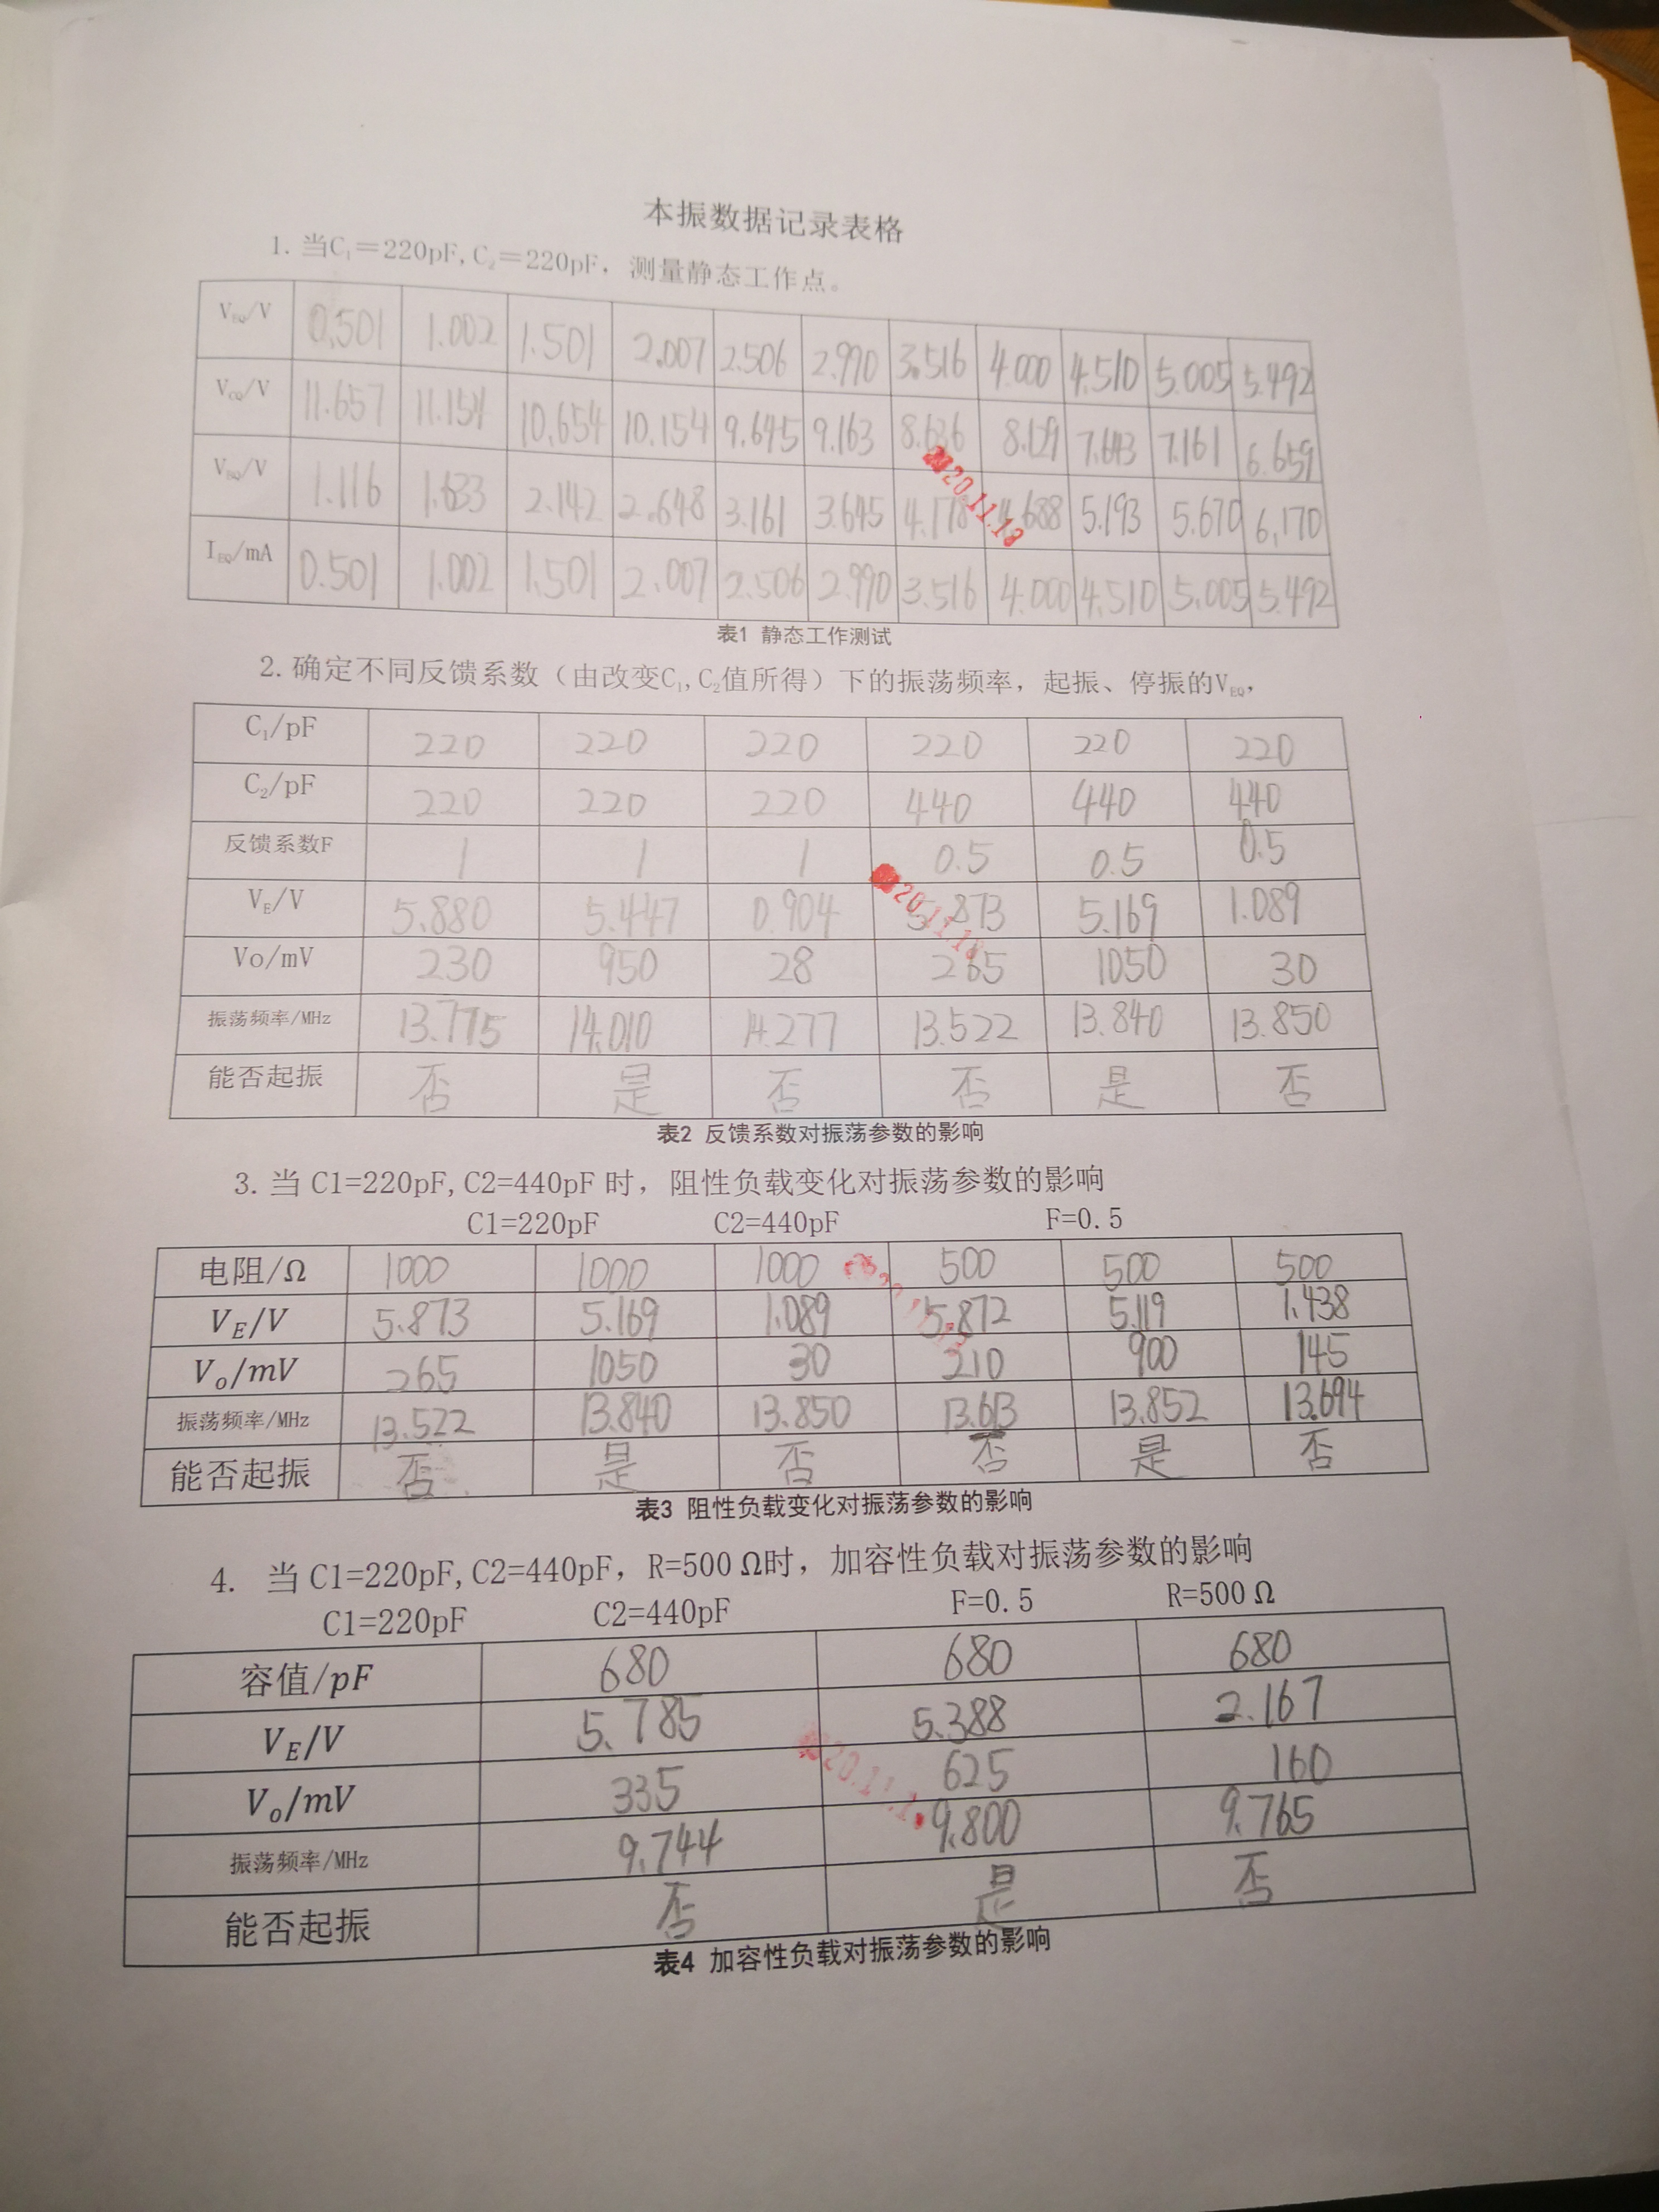 本振数据记录表格
1. 当C₁=220pF, C₂=220pF, 测量静态工作点。
V_EQ/V 0.501 1.002 1.501 2.007 2.506 2.990 3.516 4.000 4.510 5.005 5.492
V_CQ/V 11.657 11.154 10.654 10.154 9.645 9.163 8.636 8.129 7.643 7.161 6.659
V_BQ/V 1.116 1.633 2.142 2.648 3.161 3.645 4.178 4.688 5.193 5.670 6.170
I_EQ/mA 0.501 1.002 1.501 2.007 2.506 2.990 3.516 4.000 4.510 5.005 5.492
表1 静态工作测试
2. 确定不同反馈系数（由改变C₁, C₂值所得）下的振荡频率，起振、停振的V_EQ，
C₁/pF 220 220 220 220 220 220
C₂/pF 220 220 220 440 440 440
反馈系数F 1 1 1 0.5 0.5 0.5
V_E/V 5.880 5.447 0.904 5.873 5.169 1.089
Vo/mV 230 950 28 265 1050 30
振荡频率/MHz 13.775 14.010 14.277 13.522 13.840 13.850
能否起振 否 是 否 否 是 否
表2 反馈系数对振荡参数的影响
3. 当 C1=220pF, C2=440pF 时，阻性负载变化对振荡参数的影响
C1=220pF C2=440pF F=0.5
电阻/Ω 1000 1000 1000 500 500 500
V_E/V 5.873 5.169 1.089 5.872 5.119 1.438
V_o/mV 265 1050 30 210 900 145
振荡频率/MHz 13.522 13.840 13.850 13.613 13.852 13.694
能否起振 否 是 否 否 是 否
表3 阻性负载变化对振荡参数的影响
4. 当 C1=220pF, C2=440pF，R=500 Ω时，加容性负载对振荡参数的影响
C1=220pF C2=440pF F=0.5 R=500 Ω
容值/pF 680 680 680
V_E/V 5.785 5.388 2.167
V_o/mV 335 625 160
振荡频率/MHz 9.744 9.800 9.765
能否起振 否 是 否
表4 加容性负载对振荡参数的影响